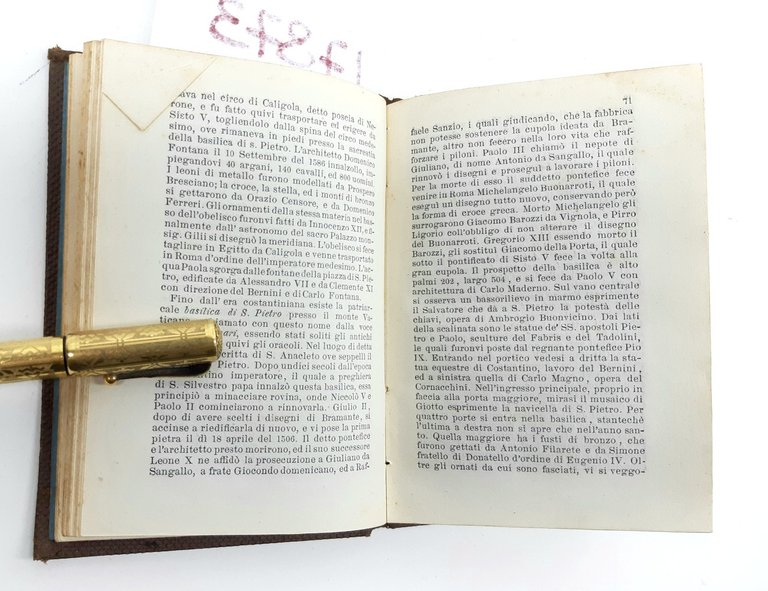 ava nel circo di Caligola, detto poscia di Ne-
rone, e fu fatto quivi trasportare ed erigere da
Sisto V, togliendolo dalla spina del circo mede-
simo, ove rimaneva in piedi presso la sacrestia
della basilica di s. Pietro. L'architetto Domenico
Fontana il 10 Settembre del 1586 innalzollo, im-
piegandovi 40 argani, 140 cavalli, ed 800 uomini.
I leoni di metallo furono modellati da Prospero
Bresciano; la croce, la stella, ed i monti di bronzo
si gettarono da Orazio Censore, e da Domenico
Ferreri. Gli ornamenti della stessa materia nel bas-
so dell'obelisco furonvi fatti da Innocenzo XII, e fi-
nalmente dall'astronomo del sacro Palazzo mon-
sig. Gilii si disegnò la meridiana. L'obelisco si fece
tagliare in Egitto da Caligola e venne trasportato
in Roma d'ordine dell'imperatore medesimo. L'ac-
qua Paola sgorga dalle fontane della piazza di S. Pie-
tro, edificate da Alessandro VII e da Clemente XI
con direzione del Bernini e di Carlo Fontana.
Fino dall'era costantiniana esiste la patriar-
cale basilica di S. Pietro presso il monte Va-
ticano, amato con questo nome dalla voce
ari, essendo stati soliti gli antichi
quivi gli oracoli. Nel luogo di detta
critta di S. Anacleto ove seppellì il
Pietro. Dopo undici secoli dall'epoca
ino imperatore, il quale a preghiera
di S. Silvestro papa innalzò questa basilica, essa
principiò a minacciare rovina, onde Niccolò V e
Paolo II cominciarono a rinnovarla. Giulio II,
dopo di avere scelti i disegni di Bramante, si
accinse a riedificarla di nuovo, e vi pose la prima
pietra il dì 18 aprile del 1506. Il detto pontefice
e l'architetto presto morirono, ed il suo successore
Leone X ne affidò la prosecuzione a Giuliano da
Sangallo, a frate Giocondo domenicano, ed a Raf-
71
faele Sanzio, i quali giudicando, che la fabbrica
non potesse sostenere la cupola ideata da Bra-
mante, altro non fecero nella loro vita che raf-
forzare i piloni. Paolo III chiamò il nepote di
Giuliano, di nome Antonio da Sangallo, il quale
rinnovò i disegni e proseguì a lavorare i piloni.
Per la morte di esso il suddetto pontefice fece
venire in Roma Michelangelo Buonarroti, il quale
eseguì un disegno tutto nuovo, conservando però
la forma di croce greca. Morto Michelangelo gli
surrogarono Giacomo Barozzi da Vignola, e Pirro
Ligorio coll'obbligo di non alterare il disegno
del Buonarroti. Gregorio XIII essendo morto il
Barozzi, gli sostituì Giacomo della Porta, il quale
sotto il pontificato di Sisto V fece la volta alla
gran cupola. Il prospetto della basilica è alto
palmi 202, largo 504, e si fece da Paolo V con
architettura di Carlo Maderno. Sul vano centrale
si osserva un bassorilievo in marmo esprimente il
Salvatore che dà a S. Pietro la potestà delle
chiavi, opera di Ambrogio Buonvicino. Dai lati
della scalinata sono le statue de' SS. apostoli Pie-
tro e Paolo, sculture del Fabris e del Tadolini,
le quali furonvi poste dal regnante pontefice Pio
IX. Entrando nel portico vedesi a dritta la sta-
tua equestre di Costantino, lavoro del Bernini,
ed a sinistra quella di Carlo Magno, opera del
Cornacchini. Nell'ingresso principale, proprio in
faccia alla porta maggiore, mirasi il musaico di
Giotto esprimente la navicella di S. Pietro. Per
quattro porte si entra nella basilica, stantechè
l'ultima a destra non si apre che nell'anno san-
to. Quella maggiore ha i fusti di bronzo, che
furono gettati da Antonio Filarete e da Simone
fratello di Donatello d'ordine di Eugenio IV. Ol-
tre gli ornati da cui sono fasciati, vi si veggo-